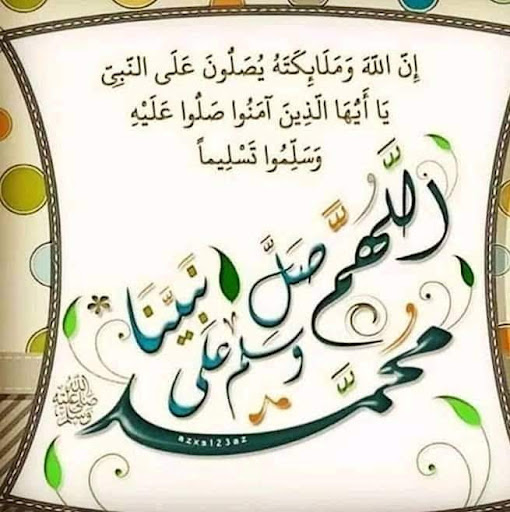 إِنَّ اللَّهَ وَمَلَابِكَتَهُ يُصَلُّونَ عَلَى النَّبِيِّ
يَا أَيُّهَا الَّذِينَ آمَنُوا صَلُّوا عَلَيْهِ
وَسَلِّمُوا تَسْلِيماً
اللَّهُمَّ صَلِّ
وسلم على نَبِيِّنَا
محمَّد
صلى الله عليه وسلم
azxs123az